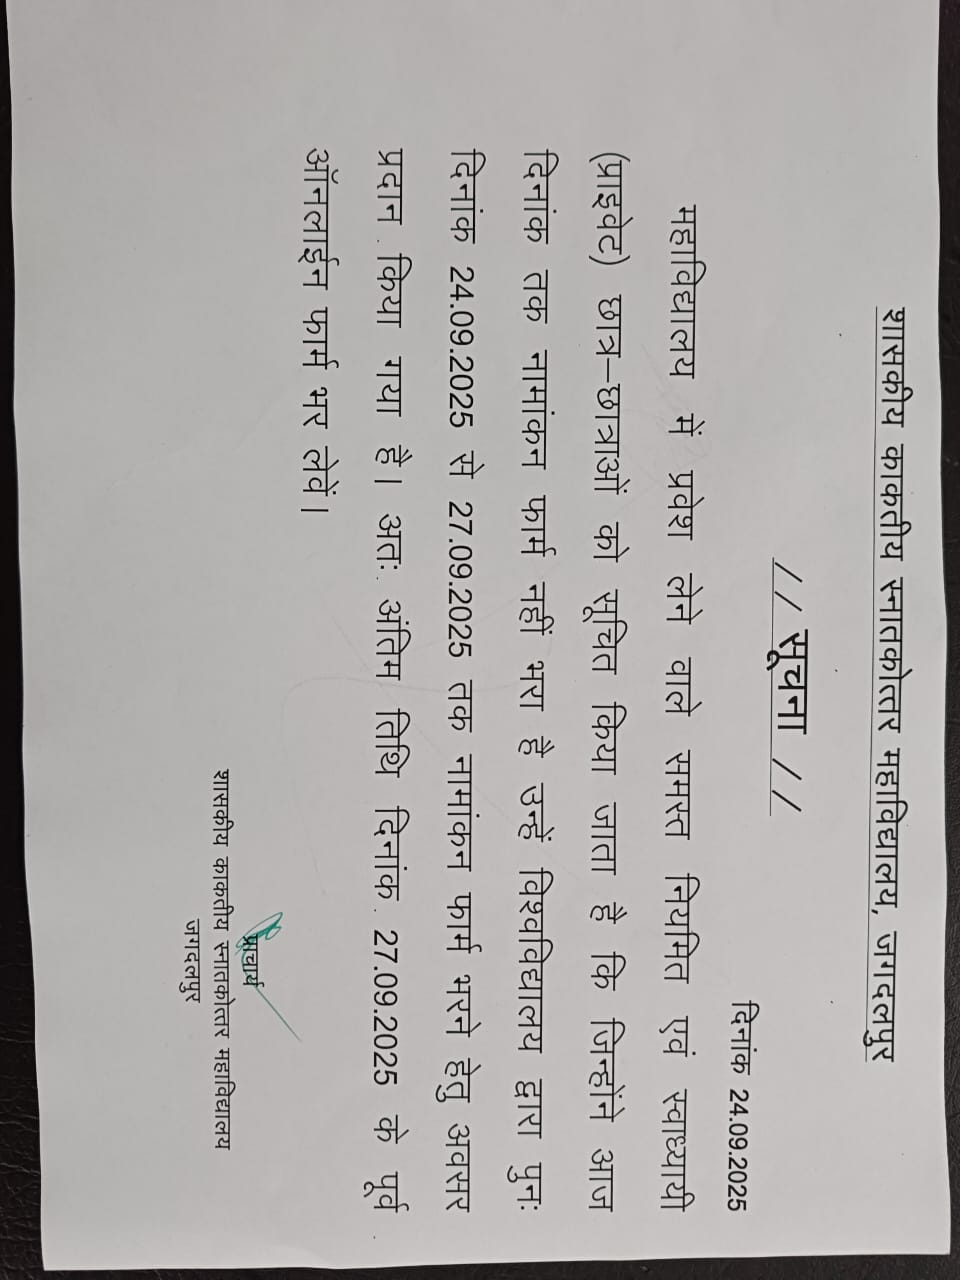 शासकीय काकतीय स्नातकोत्तर महाविद्यालय, जगदलपुर
// सूचना //
दिनांक 24.09.2025
महाविद्यालय में प्रवेश लेने वाले समस्त नियमित एवं स्वाध्यायी
(प्राइवेट) छात्र–छात्राओं को सूचित किया जाता है कि जिन्होंने आज
दिनांक तक नामांकन फार्म नहीं भरा है उन्हें विश्वविद्यालय द्वारा पुनः
दिनांक 24.09.2025 से 27.09.2025 तक नामांकन फार्म भरने हेतु अवसर
प्रदान किया गया है। अतः अंतिम तिथि दिनांक 27.09.2025 के पूर्व
ऑनलाईन फार्म भर लेवें।
प्राचार्य
शासकीय काकतीय स्नातकोत्तर महाविद्यालय
जगदलपुर